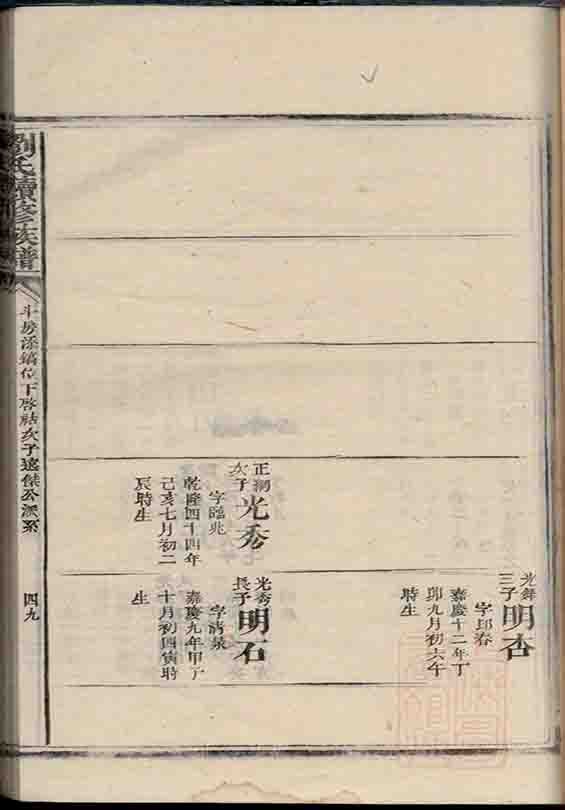 光舞
三子
明杏
字邱春
嘉慶十二年丁
卯九月初六午
時生
正潮
次子
光秀
字臨兆
乾隆四十四年
己亥七月初二
辰時生
光秀
長子
明石
字清泉
嘉慶九年甲子
十月初四寅時
生
劉氏續修族譜
斗房添鎬位下啓祜次子遠傑公派系
四九